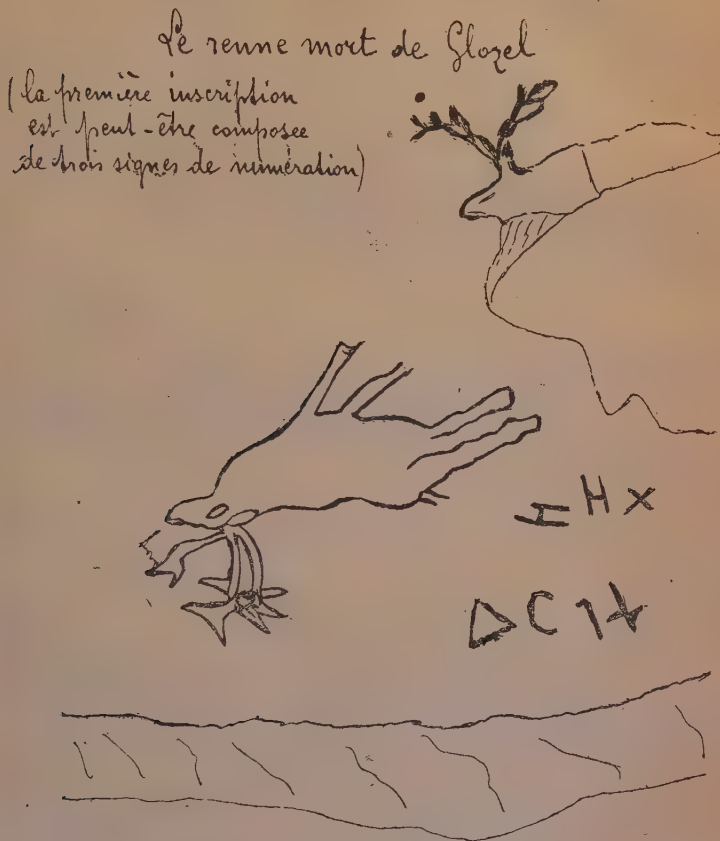 Le renne mort de Glozel
(la première inscription
est peut-être composee
de trois signes de numération)
H H X